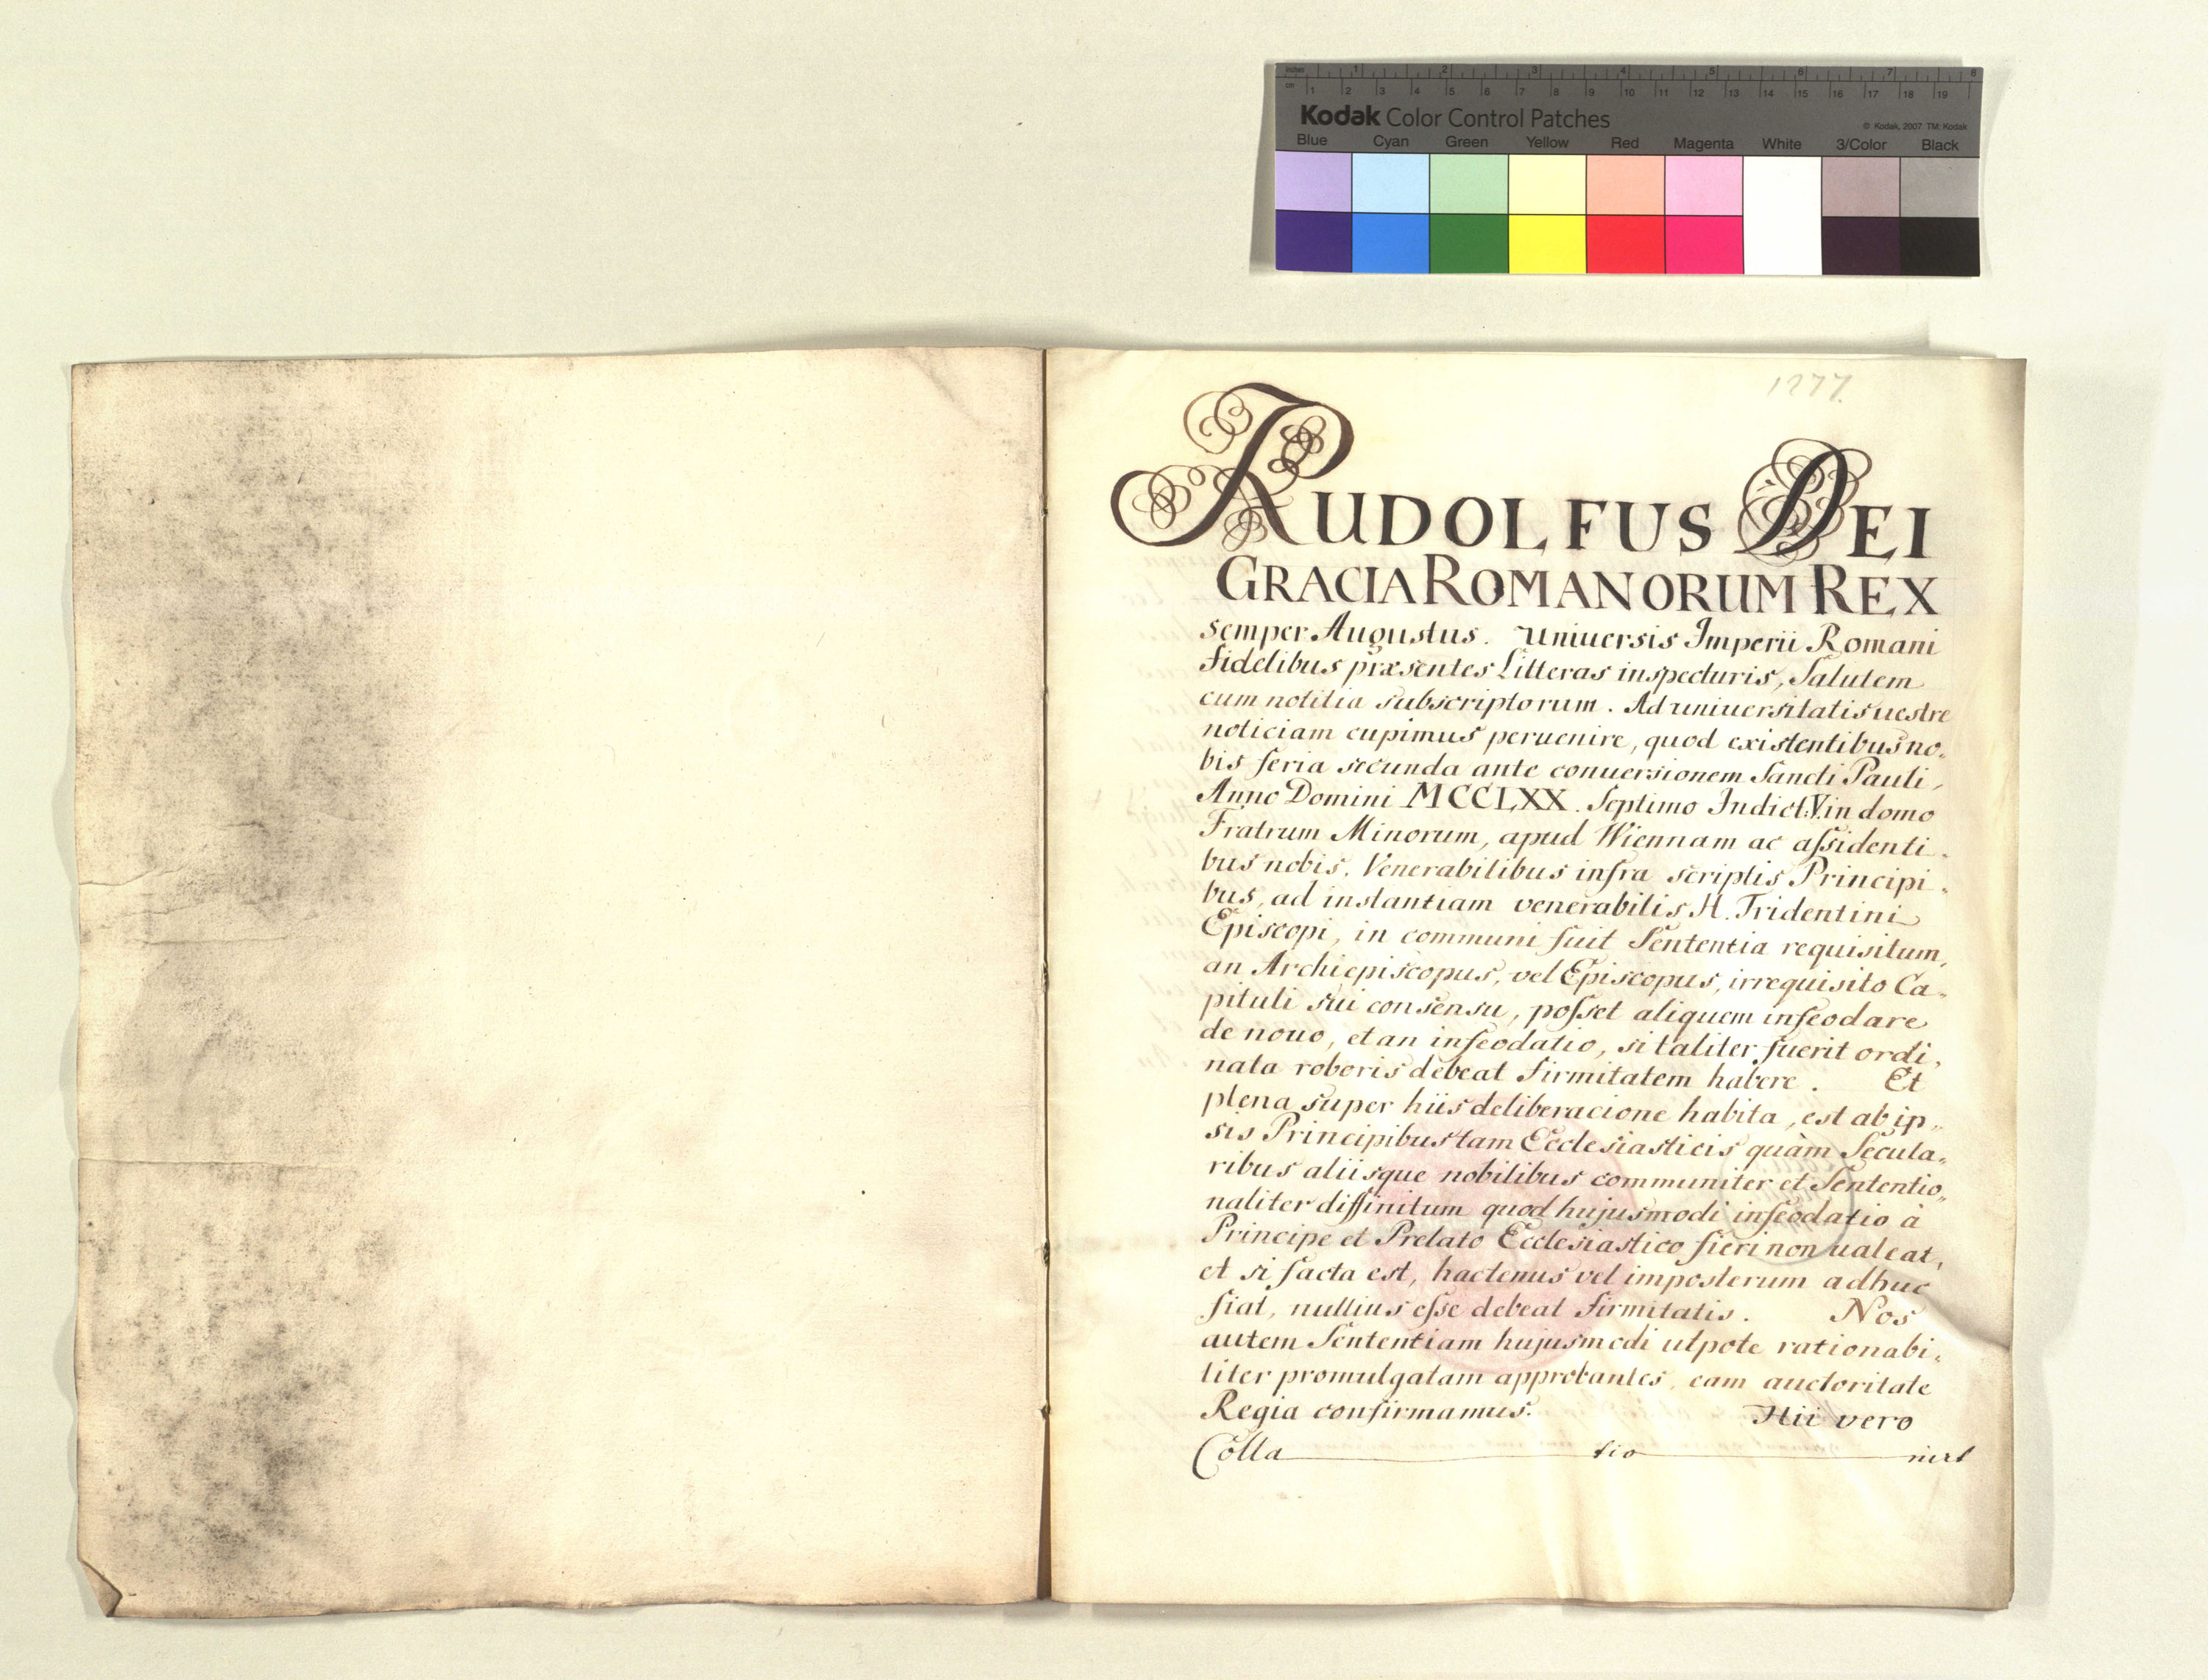 inches 1 2 3 4 5 6 7 8
cm 1 2 3 4 5 6 7 8 9 10 11 12 13 14 15 16 17 18 19
Kodak Color Control Patches
© Kodak, 2007 TM: Kodak
Blue Cyan Green Yellow Red Magenta White 3/Color Black
1277.
RUDOLFUS DEI
GRACIA ROMANORUM REX
semper Augustus. Uniuersis Imperii Romani
fidelibus præsentes Litteras inspecturis, Salutem
cum notitia subscriptorum. Ad uniuersitatis uestre
noticiam cupimus peruenire, quod existentibus no-
bis feria secunda ante conuersionem Sancti Pauli,
Anno Domini MCCLXX. Septimo Indict: V. in domo
Fratrum Minorum, apud Wiennam ac assidenti-
bus nobis, Venerabilibus infra scriptis Principi-
bus, ad instantiam venerabilis H. Tridentini
Episcopi, in communi fuit Sententia requisitum,
an Archiepiscopus, vel Episcopus, irrequisito Ca-
pituli sui consensu, posset aliquem infeodare
de nouo, et an infeodatio, si taliter fuerit ordi-
nata roboris debeat firmitatem habere. Et
plena super hiis deliberacione habita, est ab ip-
sis Principibus tam Ecclesiasticis quàm Secula-
ribus aliisque nobilibus communiter et Sententio-
naliter diffinitum quod hujusmodi infeodatio à
Principe et Prelato Ecclesiastico fieri non ualeat,
et si facta est, hactenus vel imposterum adhuc
fiat, nullius esse debeat firmitatis. Nos
autem Sententiam hujusmodi utpote rationabi-
liter promulgatam approbantes, eam auctoritate
Regia confirmamus. Hii vero
Colla tio nirt